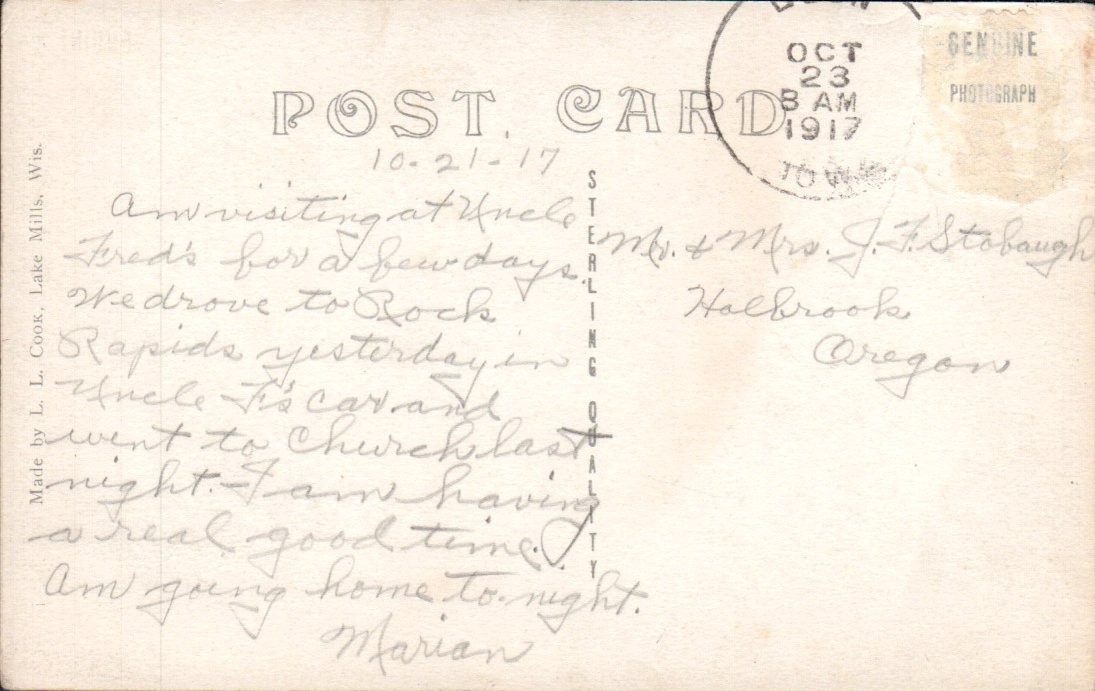 GENUINE
PHOTOGRAPH
OCT
23
8 AM
1917
IOWA
POST CARD
10-21-17
Am visiting at Uncle
Fred's for a few days.
We drove to Rock
Rapids yesterday in
Uncle F's car and
went to church last
night. I am having
a real good time.
Am going home to-night.
Marian
STERLING QUALITY
Mr. & Mrs. J. F. Stobaugh
Holbrook
Oregon
Made by L. L. Cook, Lake Mills, Wis.